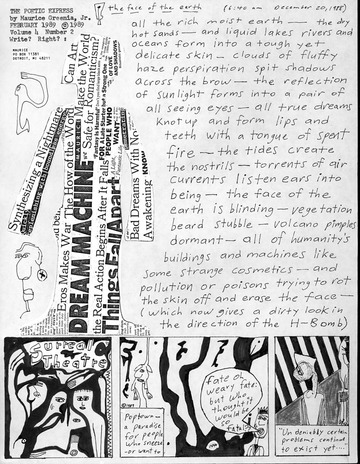 THE POETIC EXPRESS
by Maurice Greenia, Jr.
FEBRUARY 1989 @ 1989
Volume 4 Number 2
Write? Right? :
MAURICE
PO BOX 11381
DETROIT, MI 48211
the face of the earth
DECEMBER 20, 1988)
all the rich moist earth — the dry
hot sands — and liquid lakes rivers and
oceans form into a tough yet
delicate skin — clouds of fluffy
haze perspiration spit shadows
across the brow — the reflection
of sunlight forms into a pair of
all seeing eyes — all true dreams
Knot up and form lips and
teeth with a tongue of spent
fire — the tides create
the nostrils — torrents of air
currents listen ears into
being — the face of the
earth is blinding — vegetation
beard stubble — volcano pimples
dormant — all of humanity's
buildings and machines like
some strange cosmetics — and
pollution or poisons trying to rot
the skin off and erase the face —
(which now gives a dirty look in
the direction of the H-Bomb)
Synthesizing a Nightmare
Eros Makes War The How of the World
DREAM MACHINE
the Real Action Begins After It Falls
Things Fall Apart
Can Art
Make the World
Safe for Romanticism?
PEOPLE WHO
WANT
Bad Dreams With No
Awakening
KNOW
Surreal
Theatre
Peptown —
a paradise
for people
who sneeze
or want to
fate oh
weary fate:
but who
thought it
would be
so
fatal?
"Undeniably certain
problems continue
to exist yet...